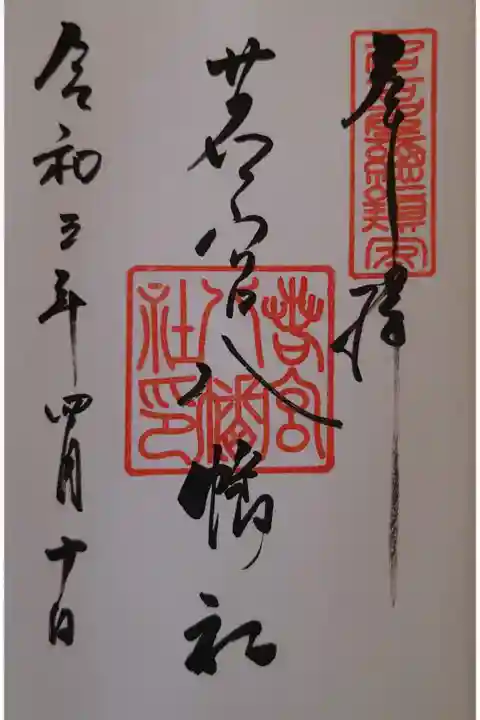 奉拝
若宮八幡社
令和三年四月十日
若宮
八幡
社印